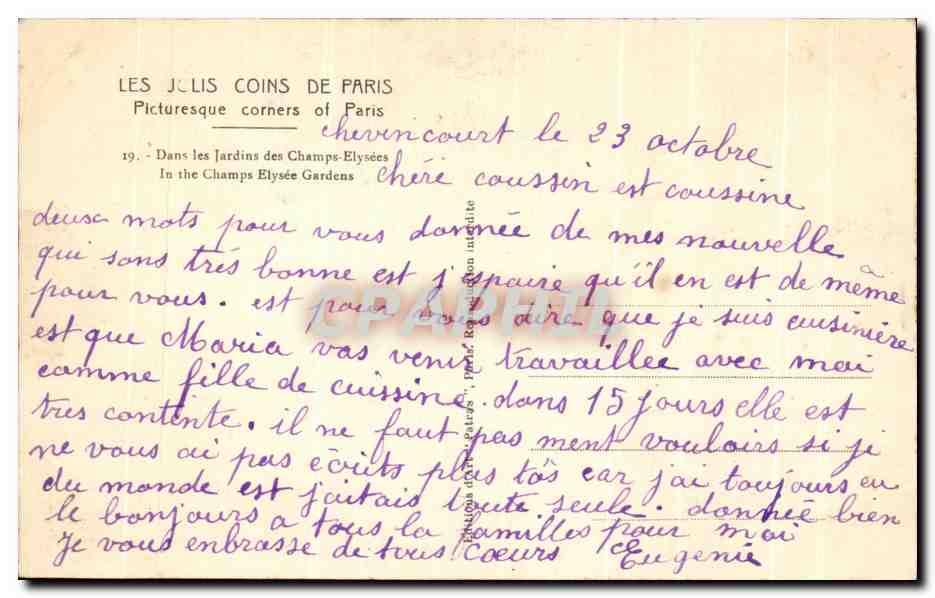 LES JOLIS COINS DE PARIS
Picturesque corners of Paris
19. - Dans les Jardins des Champs-Elysées
In the Champs Elysée Gardens
Chevincourt le 23 octobre
chére coussin est coussine
deux mots pour vous donnée de mes nouvelle
qui sons trés bonne est j'spaire qu'il en est de même
pour vous. est pour vous dire que je suis cuisinière
est que Maria vas venir travaillee avec moi
comme fille de cuissine. dans 15 jours elle est
tres contente. il ne faut pas ment vouloirs si je
ne vous ai pas écrits plus tôs car j'ai toujours eu
du monde est j'aitais toute seule. donnée bien
le bonjours a tous la familles pour moi
Je vous enbrasse de tous cœurs Eugenie
Editions d'Art "Patras", Paris. Reproduction interdite
CPAPHIL